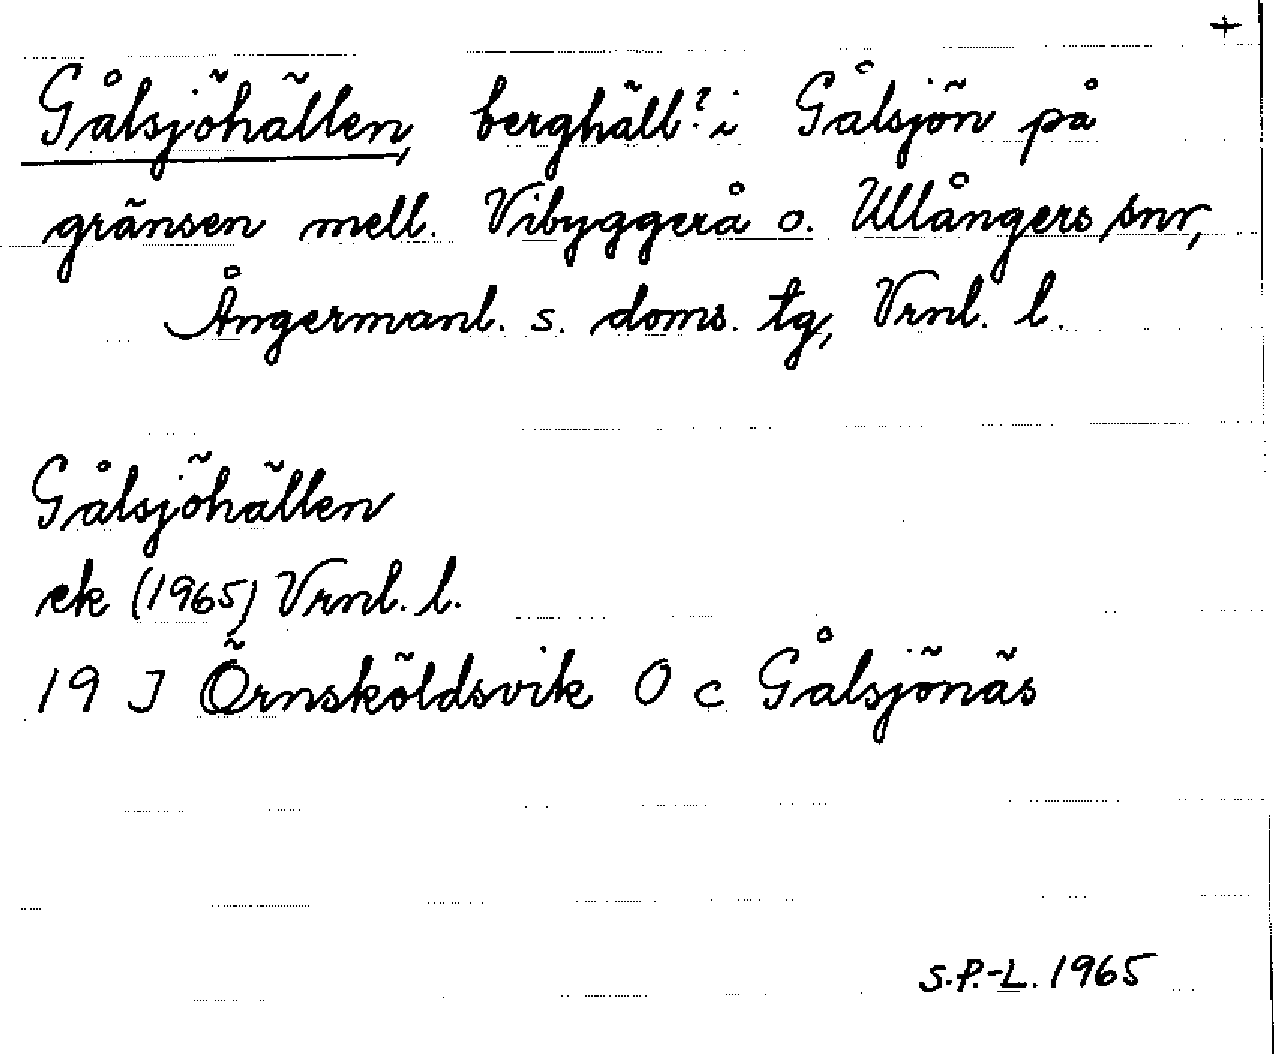 +
Gålsjöhällen, berghäll? i Gålsjön på
gränsen mell. Vibyggerå o. Ullångers snr,
Ångermanl. s. doms. tg, Vrnl. l.
Gålsjöhällen
ek (1965) Vrnl. l.
19 J Örnsköldsvik O c Gålsjönäs
S.P.-L. 1965